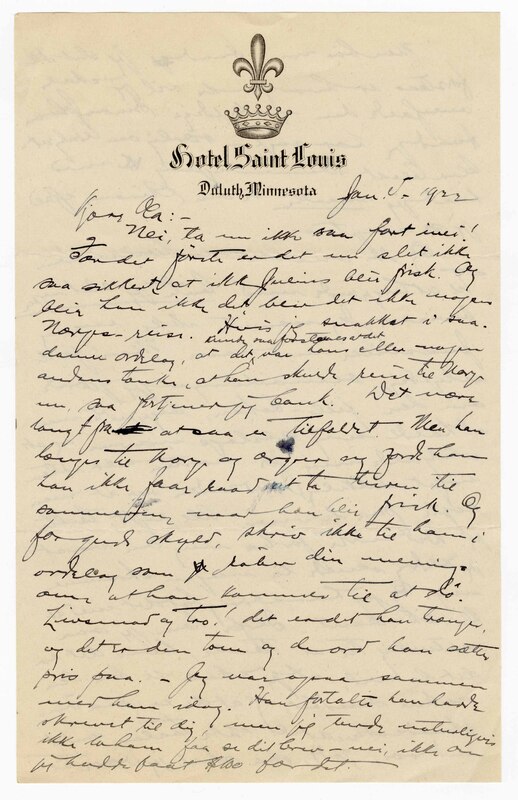 Hotel Saint Louis
Duluth, Minnesota
Jan. 5 - 1922
Kjære Ola:-
Nei, ta nu ikke saa fort ivei!
For det første er det nu slet ikke
saa sikkert at ikke Julius blir frisk. Og
blir han ikke det blir det ikke nogen
Norges-reise. Hvis jeg snakket i saa-
danne ordelag, at det var hans eller nogen
andens tanke, at han skulde reise til Norge
nu, saa fortjener jeg bank. Det være
langt fra at saa er tilfældet. Men han
længes til Norge og ærgrer sig fordi han
han ikke faar raad at ta turen til
sommeren, naar han blir frisk. Og
for guds skyld, skriv ikke til ham i
ordelag som røber din mening
om, at han kommer til at dø.
Livsmod og tro! det er det han trenger,
og det er den tone og de ord han sætter
pris paa. - Jeg var ogsaa sammen
med ham idag. Han fortalte han hadde
skrevet til dig, men jeg turde naturligvis
ikke la ham faa se dit brev - nei, ikke om
jeg hadde faat for det.